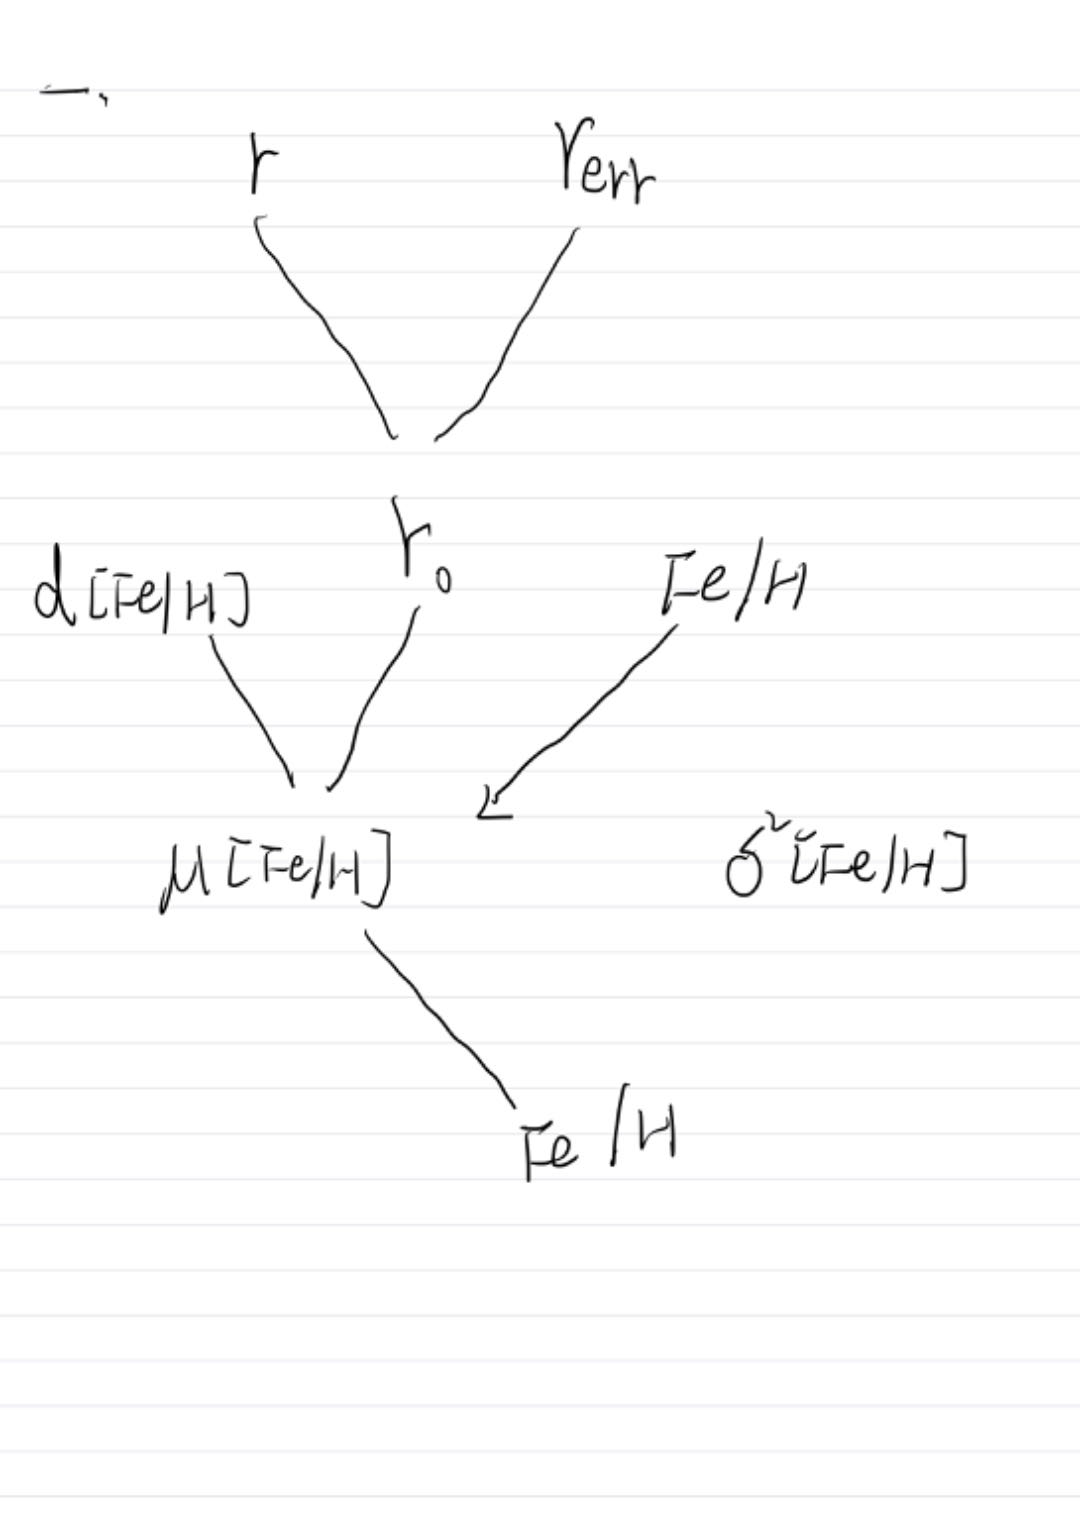 一、
r r_err
r₀
d[Fe/H] Fe/H
μ[Fe/H] δ²[Fe/H]
Fe/H